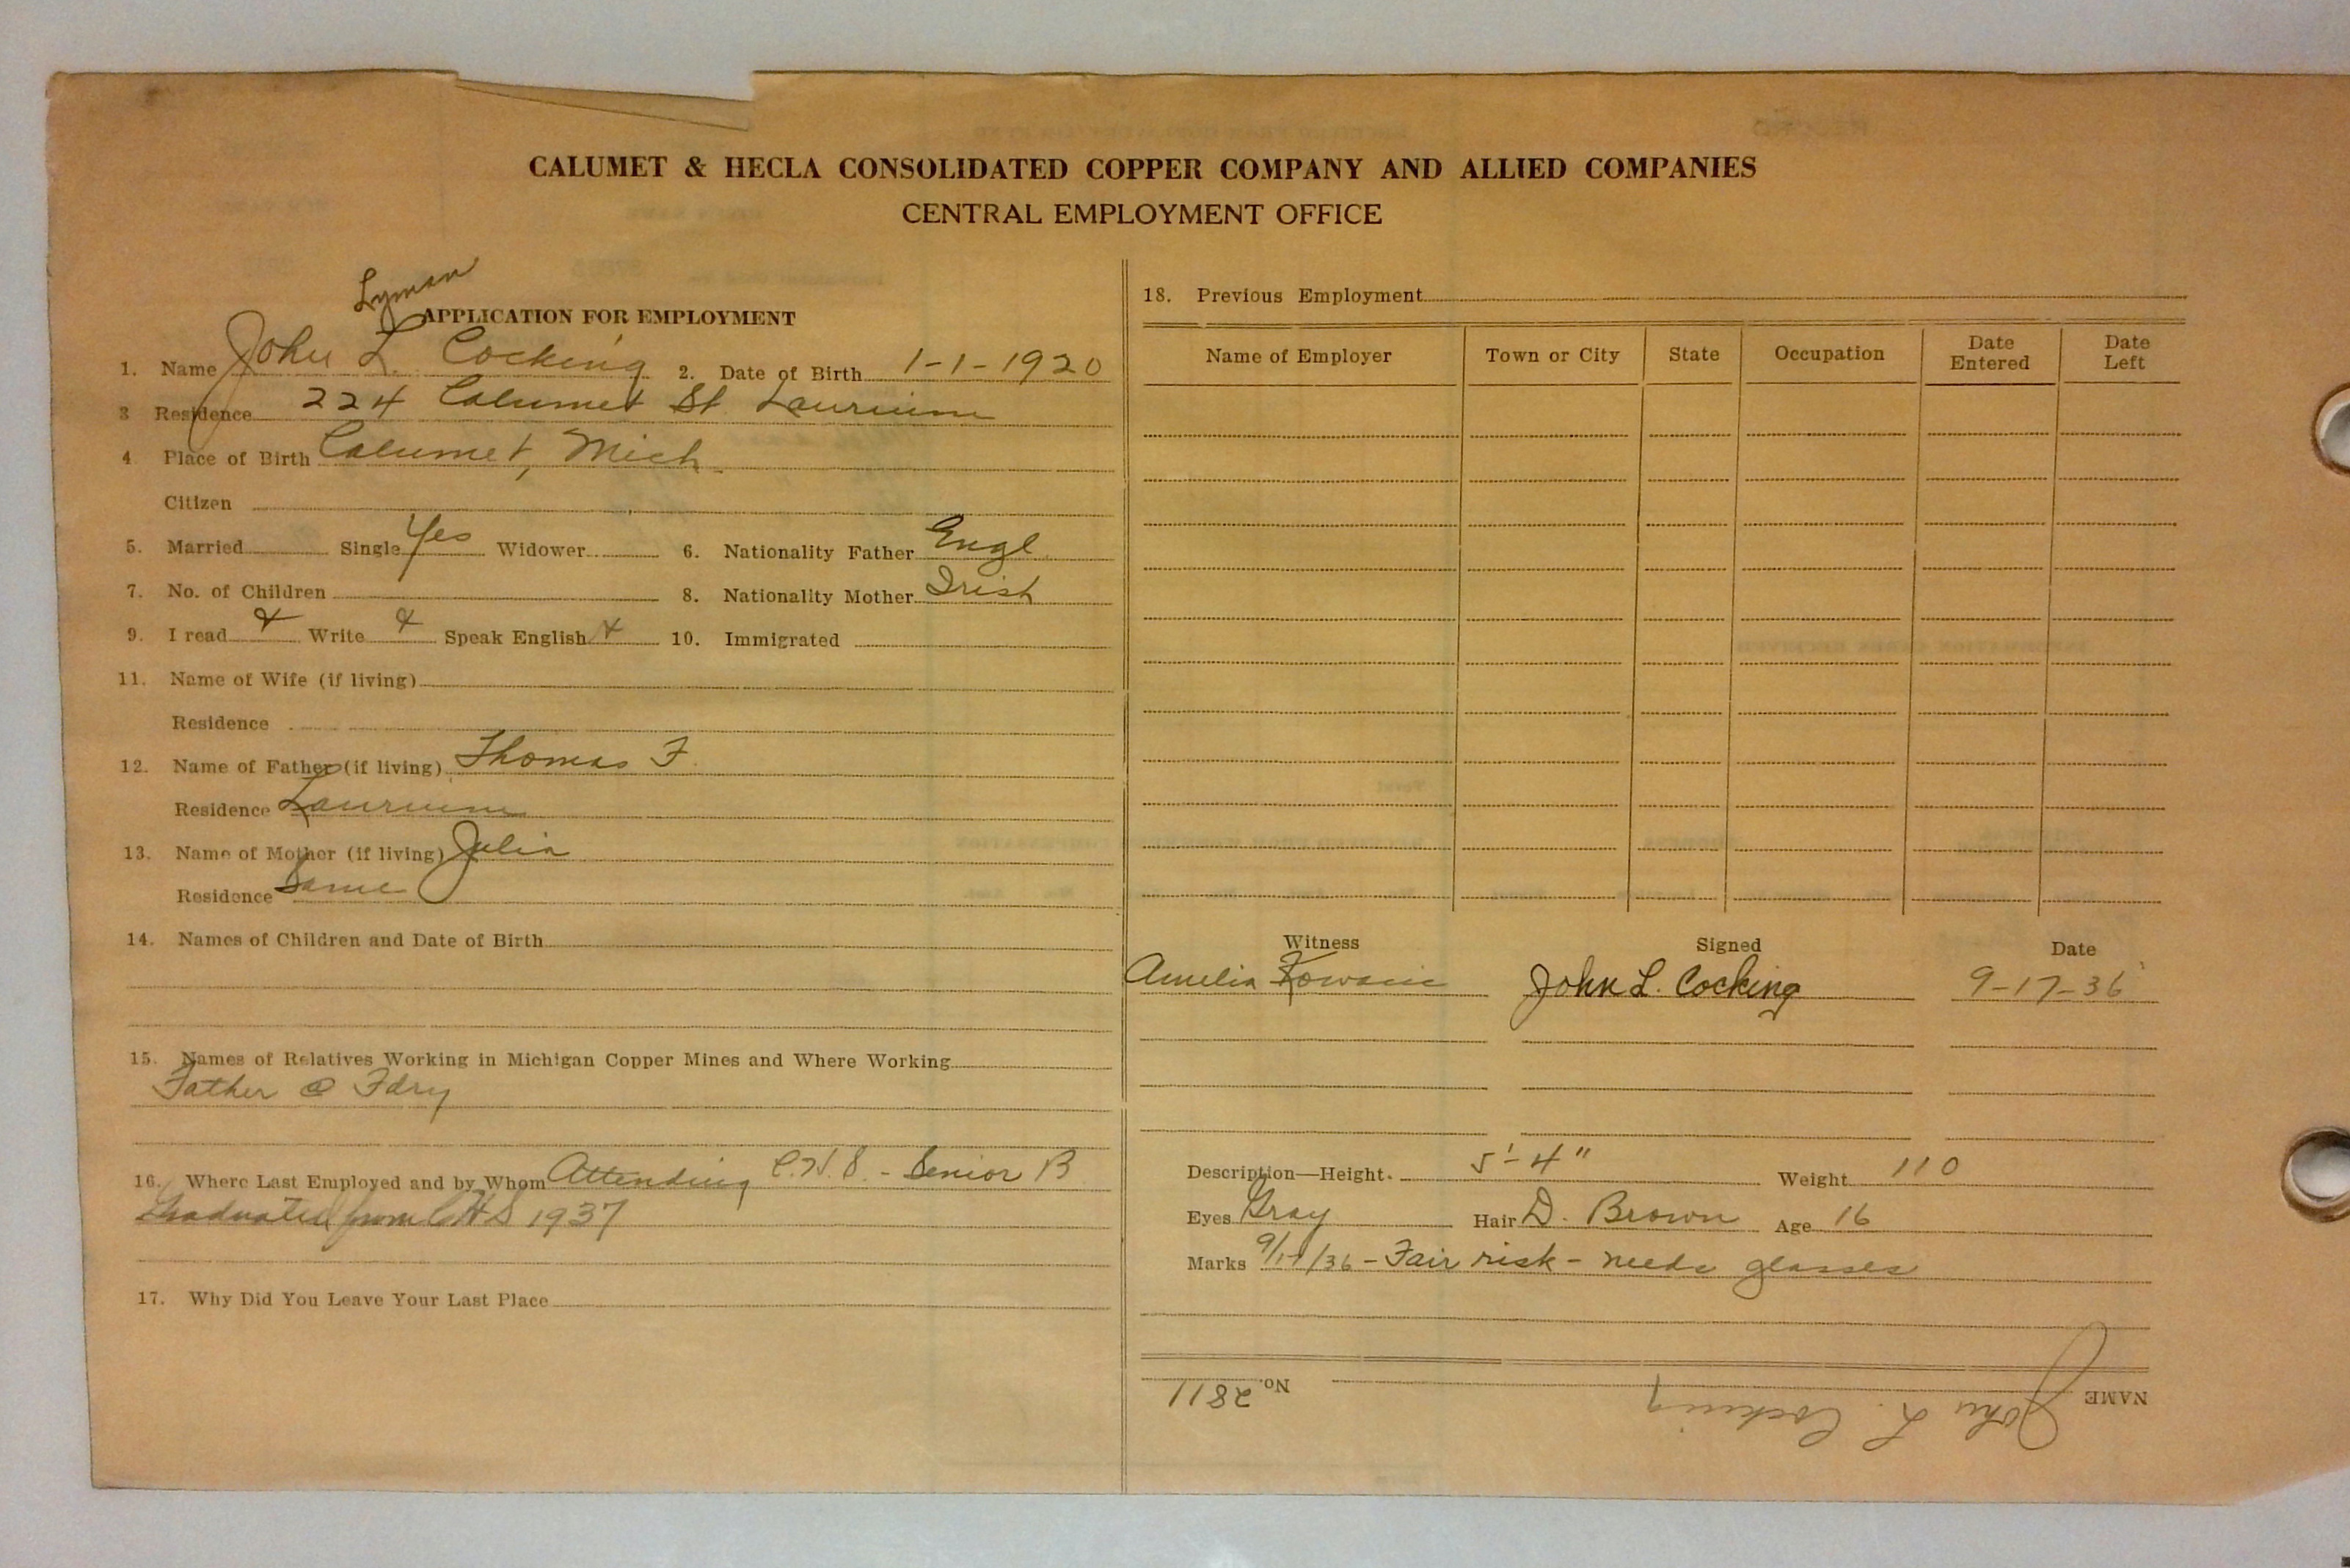 CALUMET & HECLA CONSOLIDATED COPPER COMPANY AND ALLIED COMPANIES
CENTRAL EMPLOYMENT OFFICE
Lyman
APPLICATION FOR EMPLOYMENT
1. Name John L. Cocking 2. Date of Birth 1-1-1920
3 Residence 224 Calumet St. Laurium
4 Place of Birth Calumet, Mich.
Citizen
5. Married Single Yes Widower 6. Nationality Father Engl.
7. No. of Children 8. Nationality Mother Irish
9. I read x Write x Speak English x 10. Immigrated
11. Name of Wife (if living)
Residence
12. Name of Father (if living) Thomas F.
Residence Laurium
13. Name of Mother (if living) Julia
Residence Same
14. Names of Children and Date of Birth
15. Names of Relatives Working in Michigan Copper Mines and Where Working
Father @ Fdry
16. Where Last Employed and by Whom Attending C.H.S. - Senior B
Graduated from CHS 1937
17. Why Did You Leave Your Last Place
18. Previous Employment
Name of Employer Town or City State Occupation Date Entered Date Left
Witness Signed Date
Amelia John L. Cocking 9-17-36
Description—Height. 5'-4" Weight 110
Eyes Gray Hair D. Brown Age 16
Marks 9/17/36 - Fair risk - needs glasses
NAME John L. Cocking No. 2811